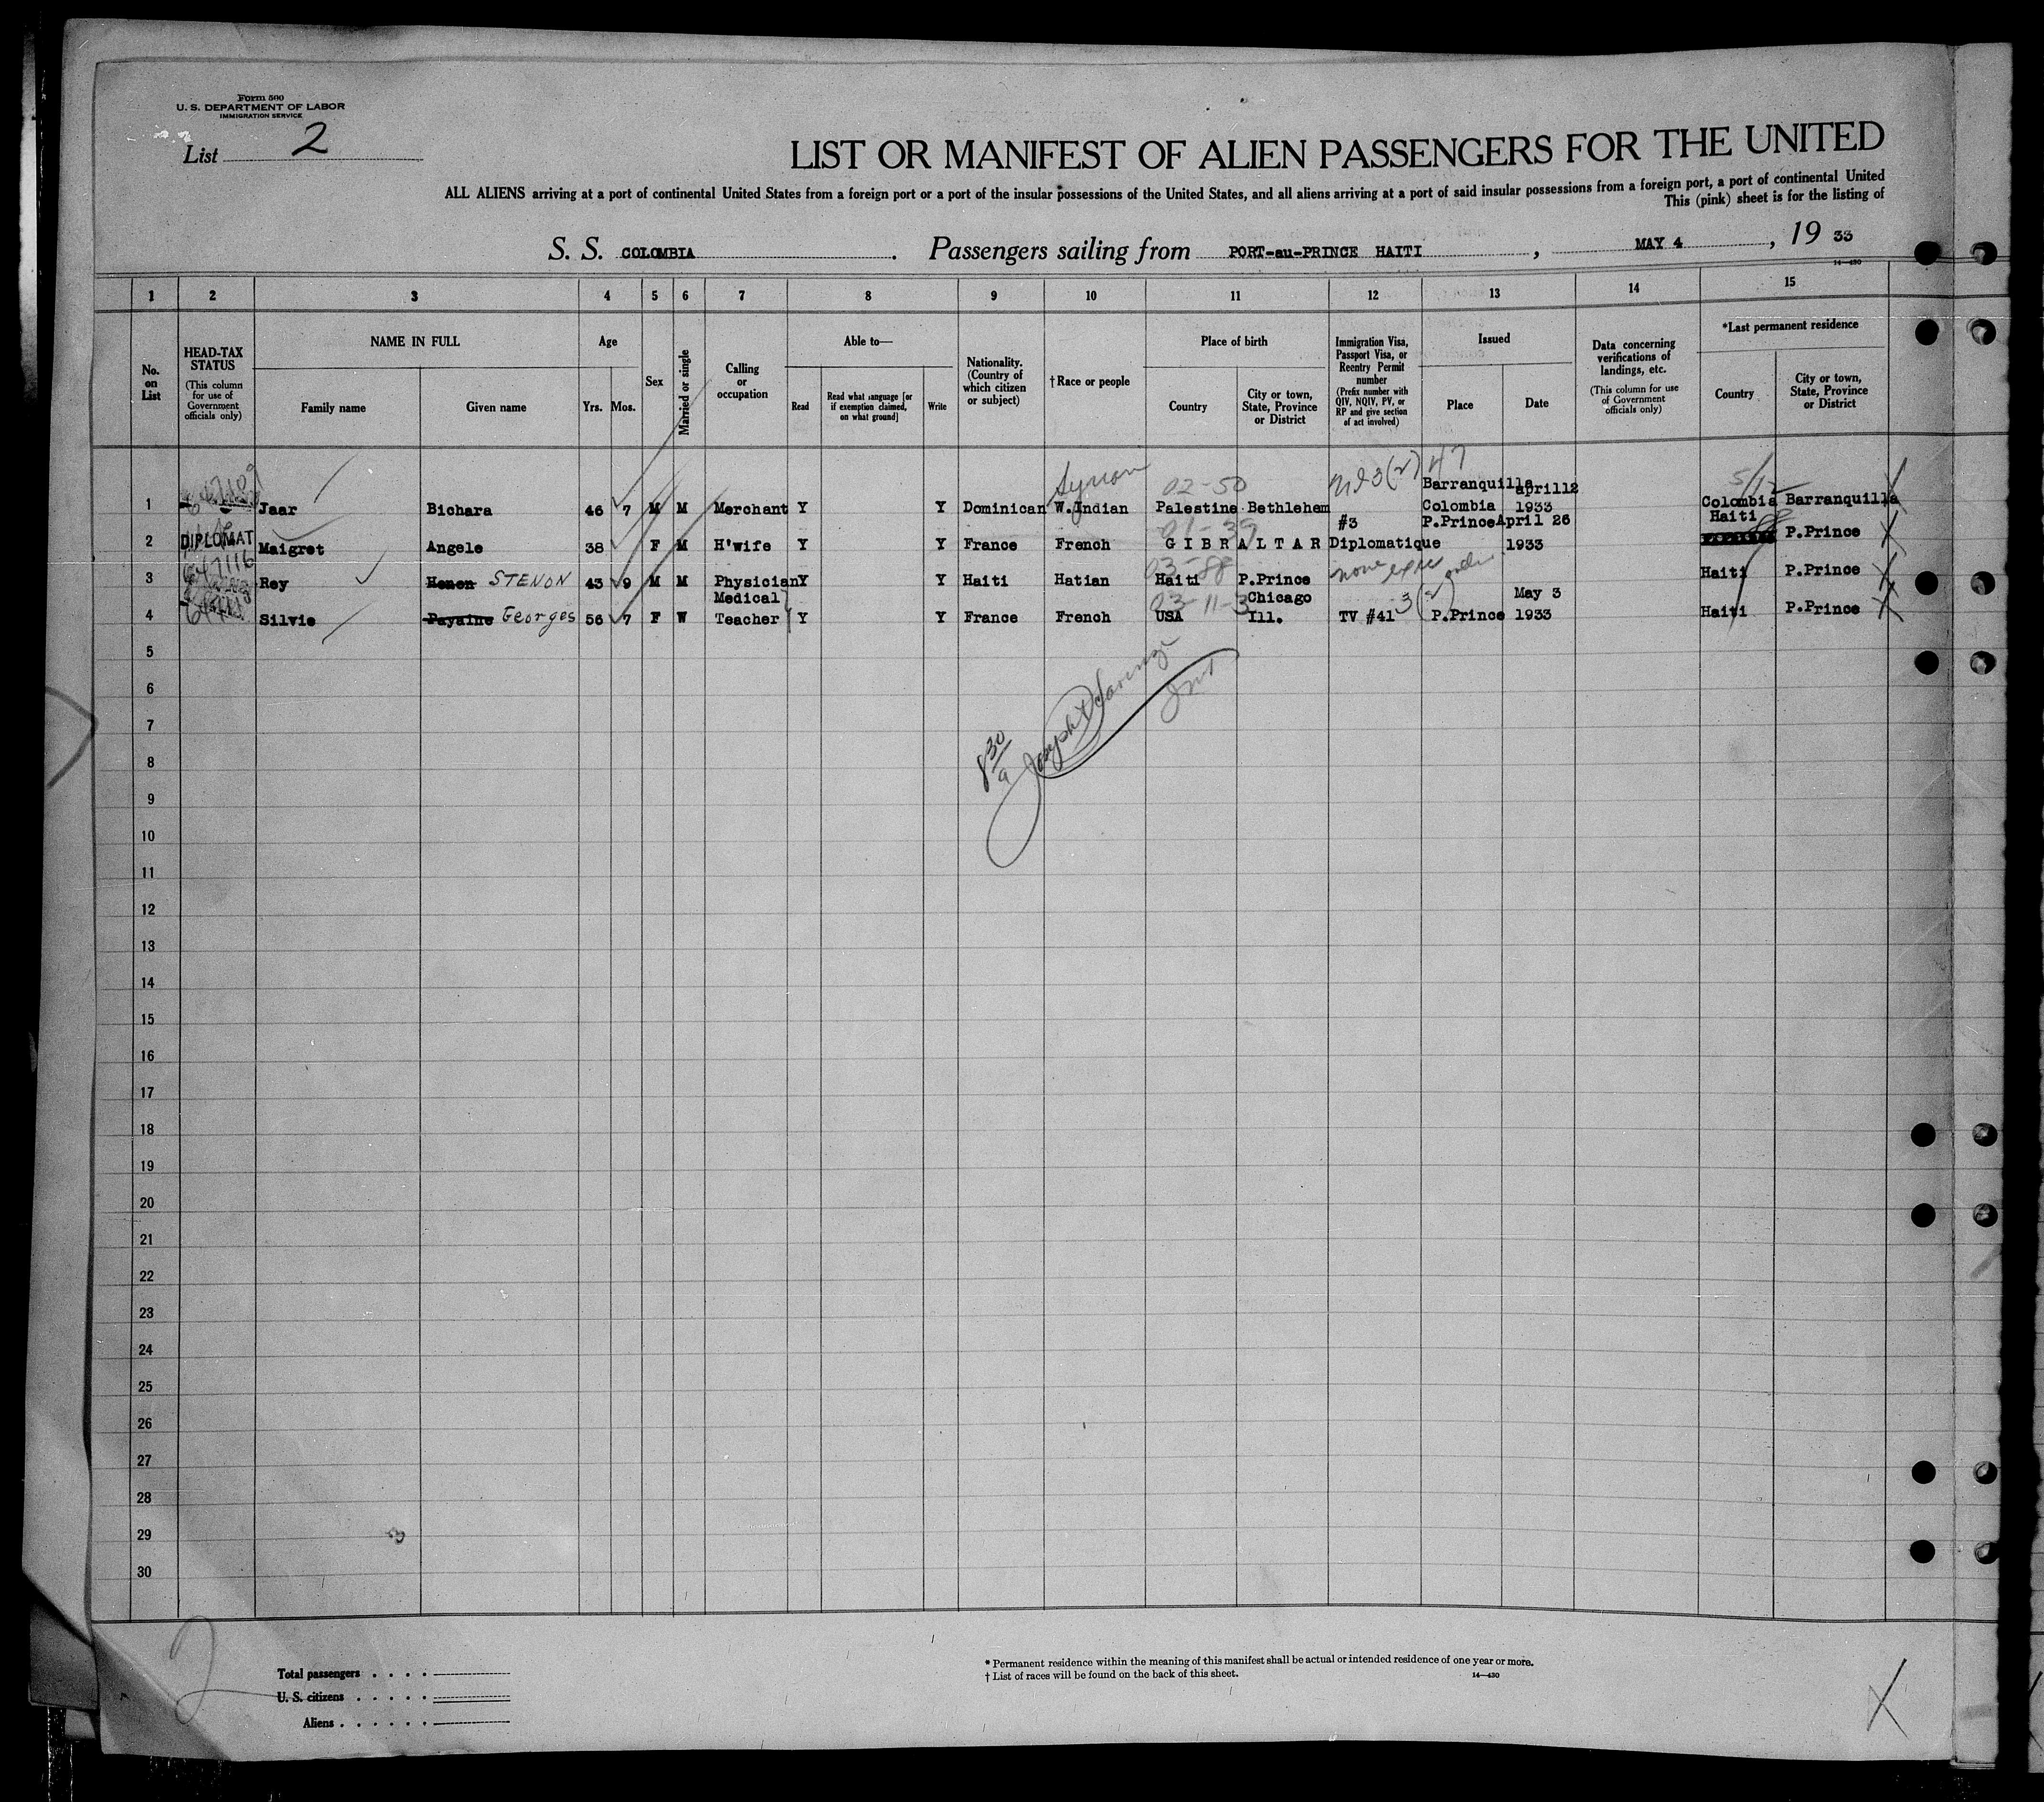 Form 500
U. S. DEPARTMENT OF LABOR
IMMIGRATION SERVICE
List 2
LIST OR MANIFEST OF ALIEN PASSENGERS FOR THE UNITED
ALL ALIENS arriving at a port of continental United States from a foreign port or a port of the insular possessions of the United States, and all aliens arriving at a port of said insular possessions from a foreign port, a port of continental United
This (pink) sheet is for the listing of
S. S. COLOMBIA. Passengers sailing from PORT-au-PRINCE HAITI, MAY 4, 19 33
14—430
1 2 3 4 5 6 7 8 9 10 11 12 13 14 15
No. on List
HEAD-TAX STATUS
(This column for use of Government officials only)
NAME IN FULL
Family name
Given name
Age
Yrs. Mos.
Sex
Married or single
Calling or occupation
Able to—
Read
Read what language [or if exemption claimed, on what ground]
Write
Nationality. (Country of which citizen or subject)
†Race or people
Place of birth
Country
City or town, State, Province or District
Immigration Visa, Passport Visa, or Reentry Permit number
(Prefix number with QIV, NQIV, PV, or RP and give section of act involved)
Issued
Place
Date
Data concerning verifications of landings, etc.
(This column for use of Government officials only)
*Last permanent residence
Country
City or town, State, Province or District
Syrian 02-50 3(2) 47 5/12
Barranquilla april12
1 Jaar Bichara 46 7 M M Merchant Y Y Dominican W.Indian Palestine Bethlehem Colombia 1933 Colombia Barranquilla
#3 P.Prince April 26 Haiti
2 DIPLOMAT Maigret Angele 38 F M H'wife Y Y France French GIBRALTAR Diplomatique 1933 P.Prince
647116 03-88 none
3 Rey Henon STENON 43 9 M M Physician Y Y Haiti Hatian Haiti P.Prince Haiti P.Prince
Medical 03-11-3 Chicago 3(2) May 3
4 Silvie Payaine Georges 56 7 F W Teacher Y Y France French USA Ill. TV #41 P.Prince 1933 Haiti P.Prince
5
6
7
8 30/a Joseph
8
9
10
11
12
13
14
15
16
17
18
19
20
21
22
23
24
25
26
27
28
29
30
2
Total passengers
U. S. citizens
Aliens
* Permanent residence within the meaning of this manifest shall be actual or intended residence of one year or more.
† List of races will be found on the back of this sheet.
14—430
X